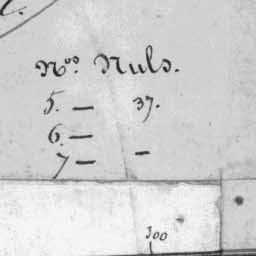 N.os Nuls.
5. — 37.
6. —
7 — —
300